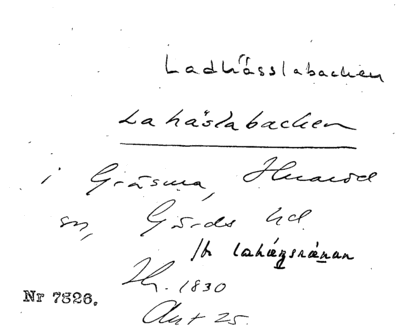 Ladhässlabacken
Lahäslabacken
i Gräsma, Huaröd
sn, Gärds hd.
Jfr lahägsránan
Th. 1830
Nr 7326.
Akt 25.